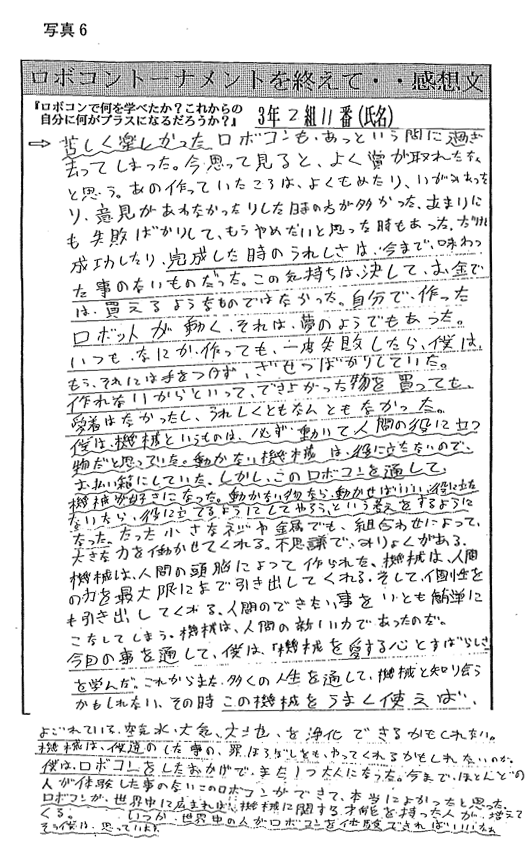 写真6
ロボコントーナメントを終えて・・感想文
『ロボコンで何を学べたか？これからの
自分に何がプラスになるだろうか？』 3年2組11番(氏名)
⇨ 苦しく楽しかったロボコンも、あっという間に過ぎ
去ってしまった。今思って見ると、よく賞が取れたな
と思う。あの作っていたころは、よくもめたり、いがみあった
り、意見があわなかったりした時の方が多かった。あまりに
も失敗ばかりして、もうやめたいと思った時もあった。だけど
成功したり、完成した時のうれしさは、今まで、味わっ
た事のないものだった。この気持ちは、決して、お金で
は、買えるようなものではなかった。自分で、作った
ロボットが動く、それは、夢のようでもあった。
いつも、なにか作っても、一度失敗したら、僕は、
もう、それには手をつけず、ざせつばかりしていた。
作れないからといって、できよかった物を買っても、
愛着はなかったし、うれしくともなんともなかった。
僕は、機械というものは、必ず動いて人間の役に立つ
物だと思っていた。動かない機械は、役に立たないので、
お払い箱にしていた。しかし、このロボコンを通して、
機械が好きになった。動かない物なら、動かせばいい、役に立た
ないなら、役に立てるようにしてやろうという考えをするように
なった。たった小さなネジや金属でも、組合わせによって、
大きな力を働かせてくれる。不思議で、みりょくがある。
機械は、人間の頭脳によって作られた。機械は、人間
の力を最大限にまで引き出してくれる。そして、個性を
も引き出してくれる。人間のできない事をいとも簡単に
こなしてしまう。機械は、人間の新しい力であったのだ。
今回の事を通して、僕は、「機械を愛する心とすばらしさ」
を学んだ。これからまた、多くの人生を通して、機械と知り合う
かもしれない、その時この機械をうまく使えば、
よごれている、空気、水、大気、大地、を浄化できるかもしれない。
機械は、僕達のした事の、罪ほろぼしをも、やってくれるかもしれないのだ。
僕は、ロボコンをしたおかげで、また1つ大人になった。今まで、ほとんどの
人が体験した事のないこのロボコンができて、本当によかったと思った。
ロボコンが、世界中に広まれば、機械に関する才能を持った人が、増えて
くる。いつか、世界中の人がロボコンを体験できればいいなぁ
そう僕は、思っています。